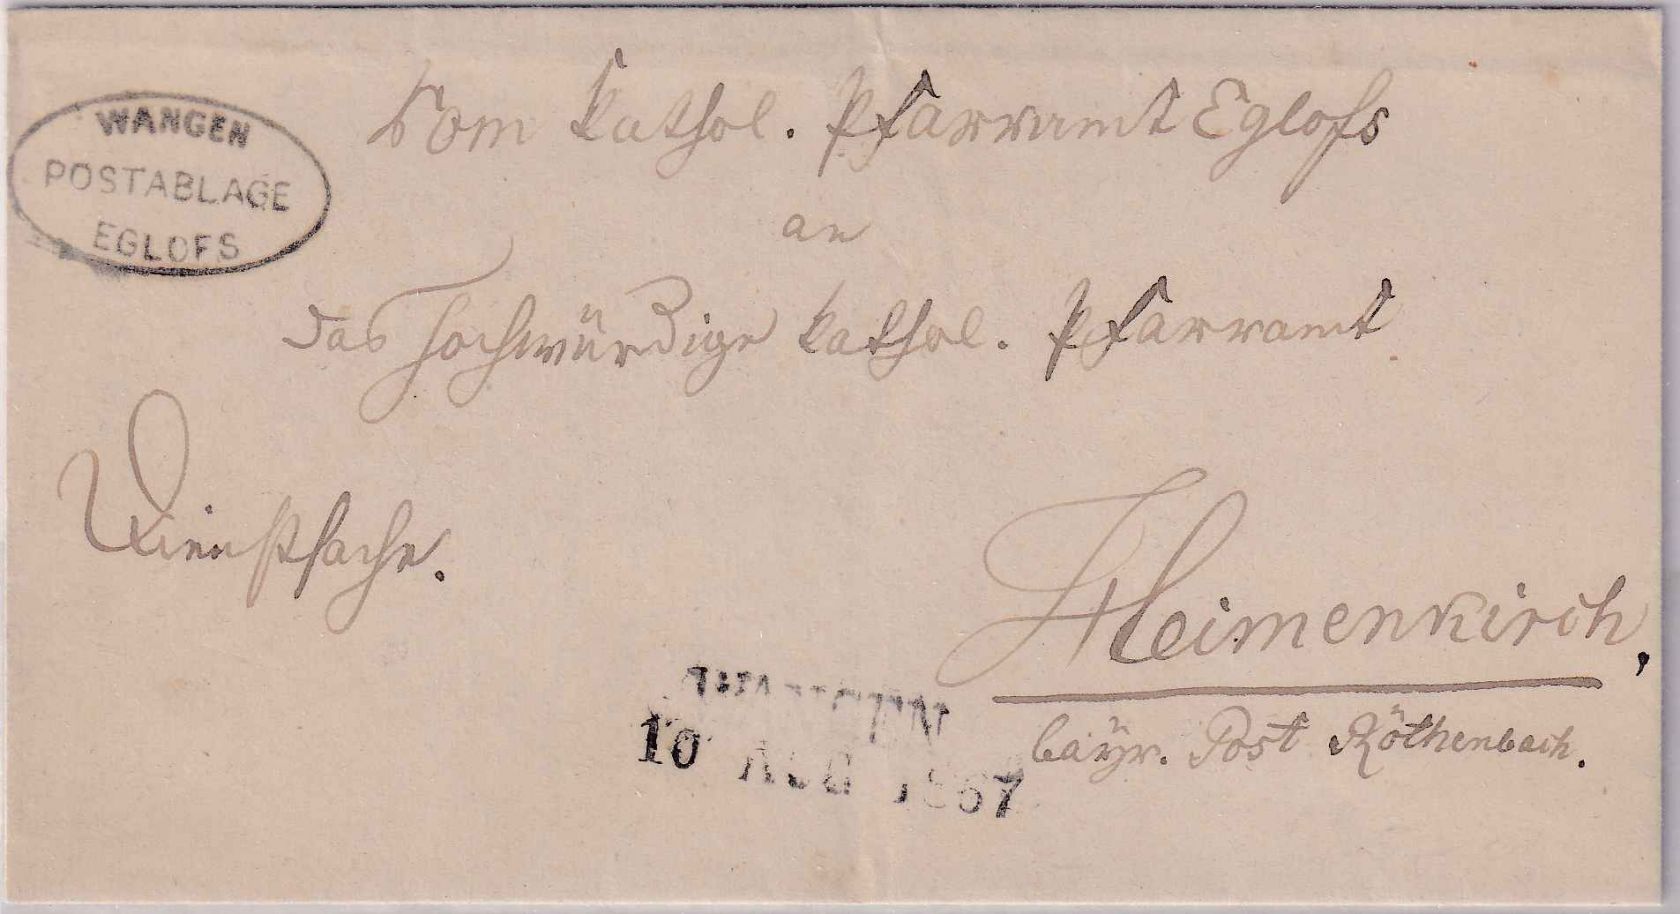 WANGEN
POSTABLAGE
EGLOFS
Vom kathol. Pfarramt Eglofs
an
das hochwürdige kathol. Pfarramt
Dienstsache.
Heimenkirch,
bayr. Post Röthenbach.
WANGEN
10 AUG 1867